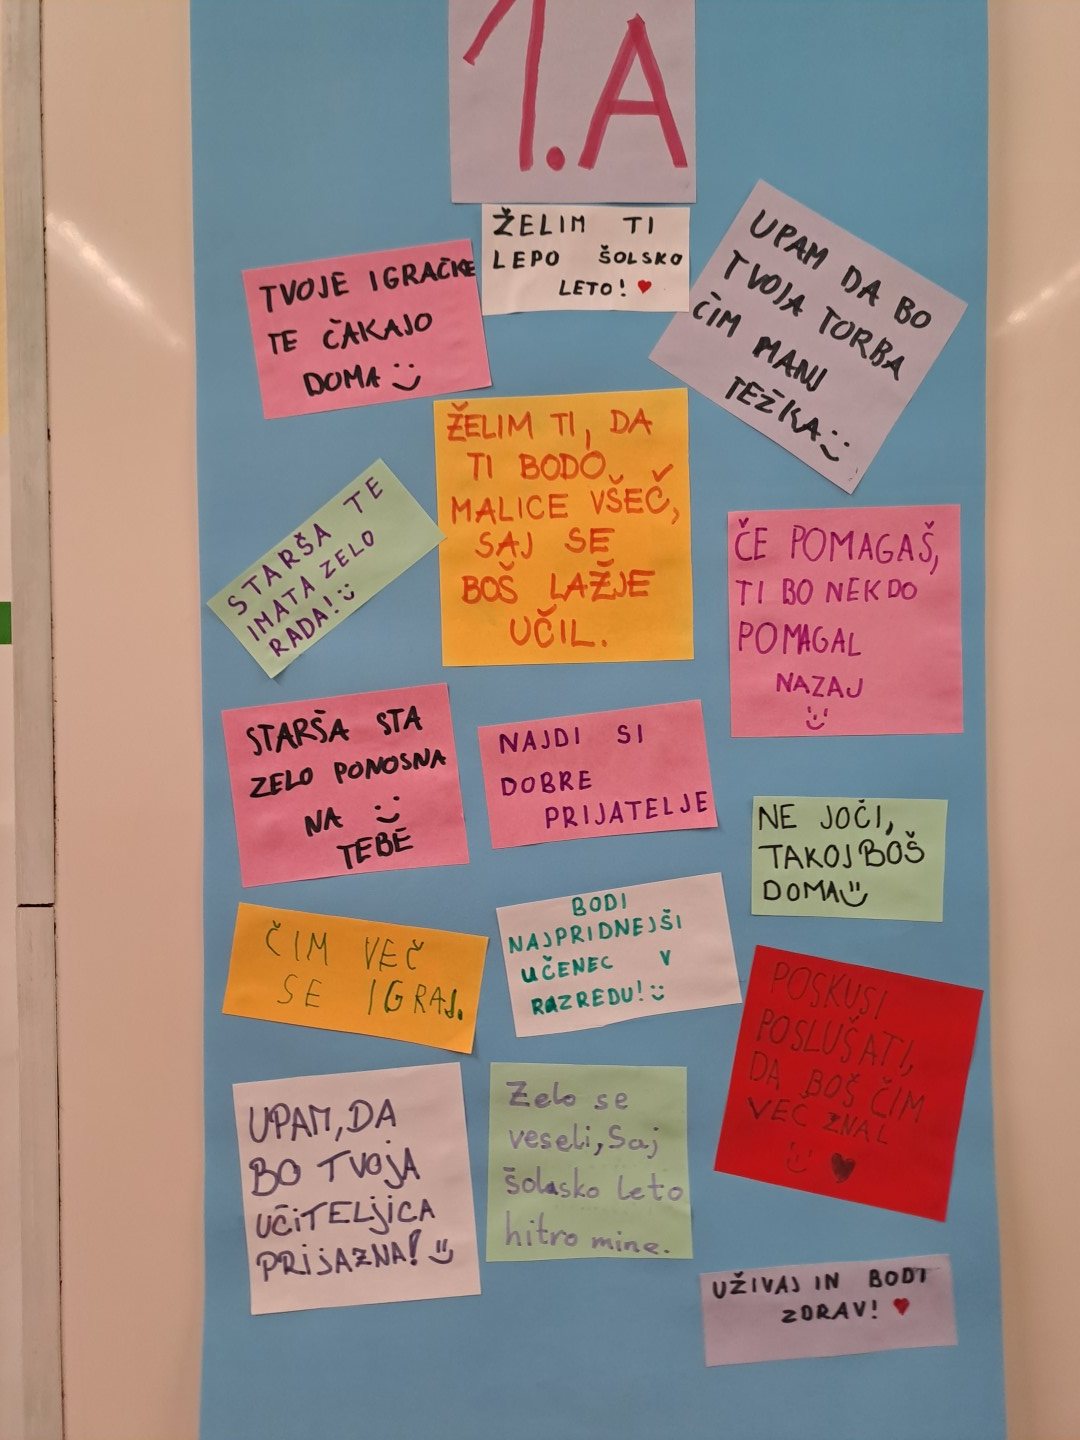 1.A
ŽELIM TI
LEPO ŠOLSKO
LETO! ♥
TVOJE IGRAČKE
TE ČAKAJO
DOMA
UPAM DA BO
TVOJA TORBA
ČIM MANJ
TEŽKA
ŽELIM TI, DA
TI BODO
MALICE VŠEČ,
SAJ SE
BOŠ LAŽJE
UČIL.
STARŠA TE
IMATA ZELO
RADA!
ČE POMAGAŠ,
TI BO NEKDO
POMAGAL
NAZAJ
STARŠA STA
ZELO PONOSNA
NA
TEBE
NAJDI SI
DOBRE
PRIJATELJE
NE JOČI,
TAKOJ BOŠ
DOMA
ČIM VEČ
SE IGRAJ.
BODI
NAJPRIDNEJŠI
UČENEC V
RAZREDU!
POSKUSI
POSLUŠATI,
DA BOŠ ČIM
VEČ ZNAL
♥
UPAM, DA
BO TVOJA
UČITELJICA
PRIJAZNA!
Zelo se
veseli, Saj
šolasko leto
hitro mine.
UŽIVAJ IN BODI
ZDRAV! ♥